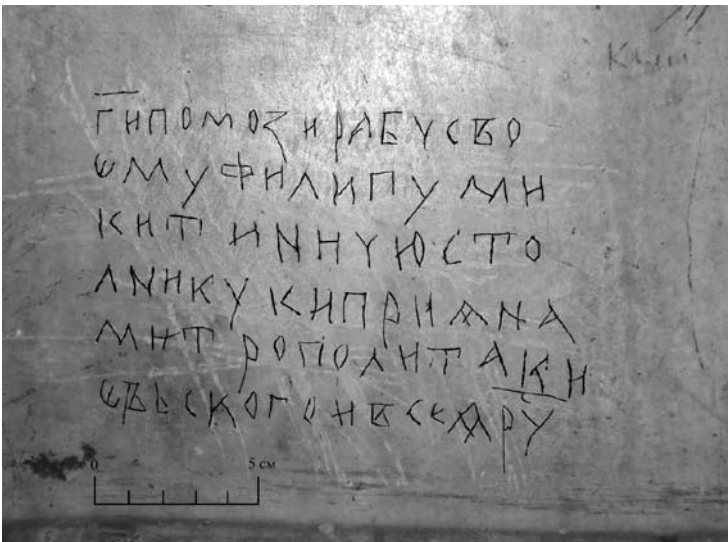 Г҃И ПОМОЗИ РАБУ СВО
ЄМУ ФИЛИПУ МИ
КИТИНИЧЮ СТО
ЛНИКУ КИПРИѦНА
МИТРОПОЛИТА КИ
ЄВЬСКОГО И ВСЕѦ РУ
0 5 см